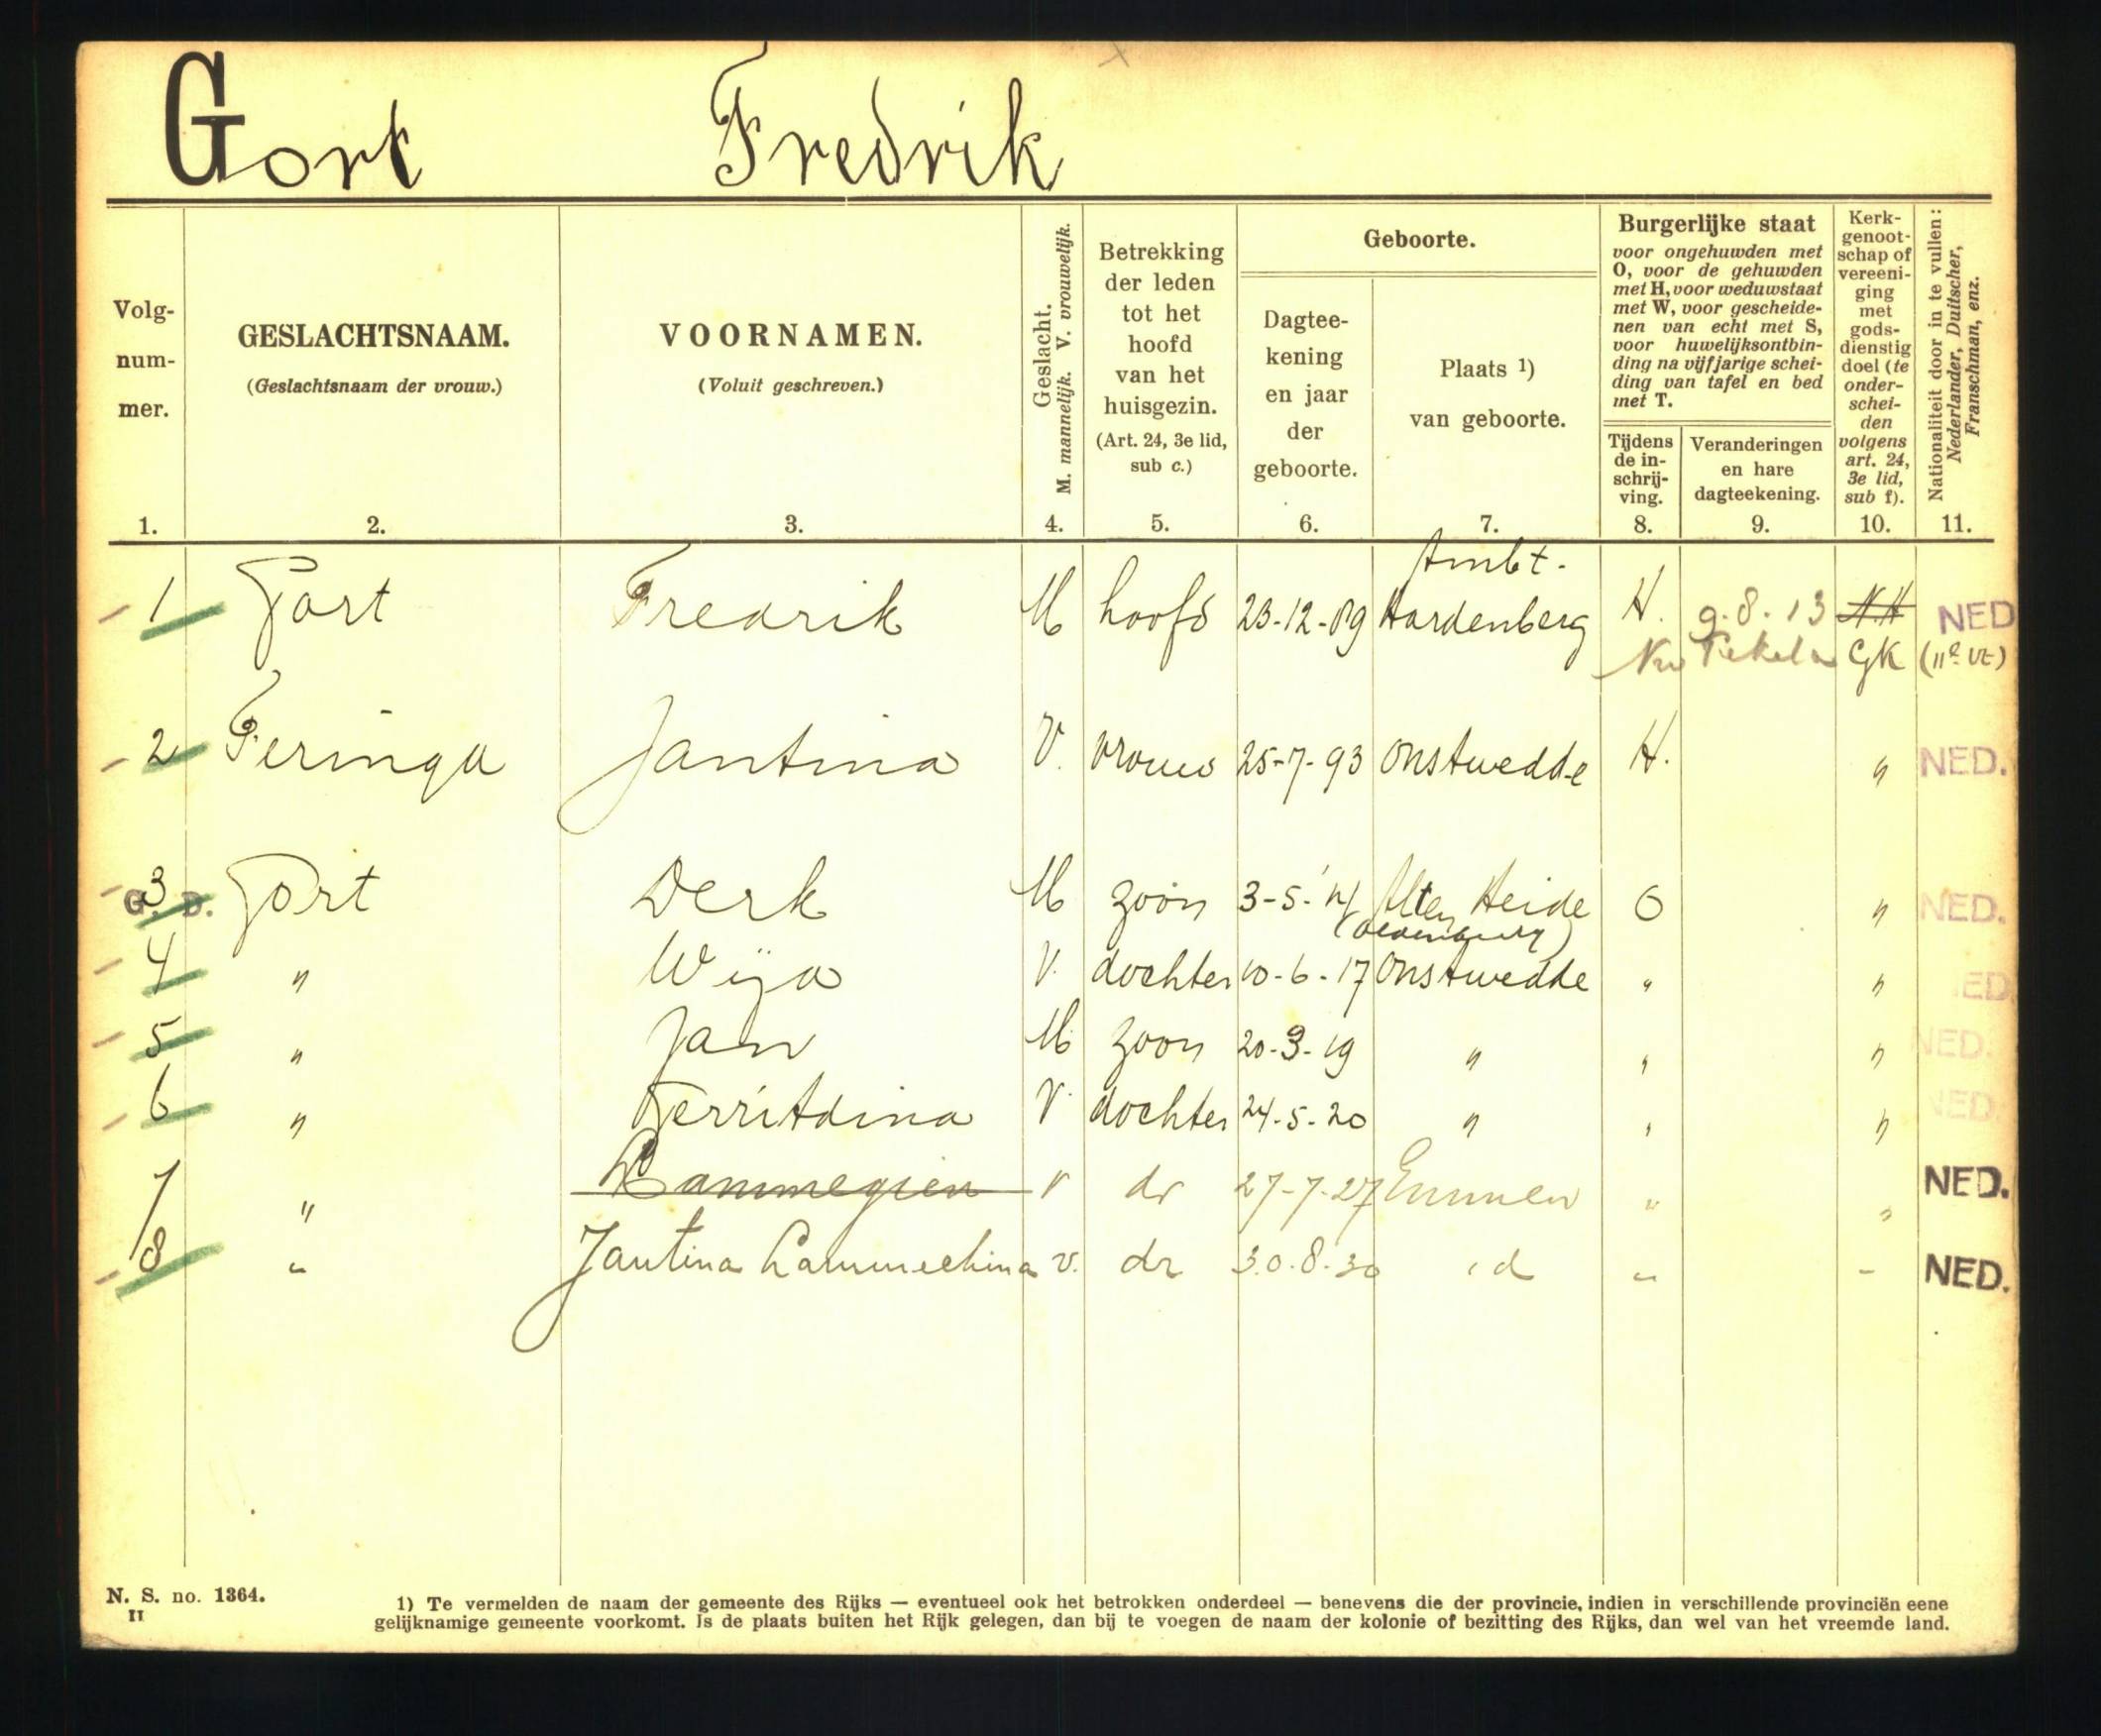 Gort Fredrik
Volg-
num-
mer.
1.
GESLACHTSNAAM.
(Geslachtsnaam der vrouw.)
2.
VOORNAMEN.
(Voluit geschreven.)
3.
Geslacht.
M. mannelijk. V. vrouwelijk.
4.
Betrekking
der leden
tot het
hoofd
van het
huisgezin.
(Art. 24, 3e lid,
sub c.)
5.
Geboorte.
Dagtee-
kening
en jaar
der
geboorte.
6.
Plaats 1)
van geboorte.
7.
Burgerlijke staat
voor ongehuwden met
O, voor de gehuwden
met H, voor weduwstaat
met W, voor gescheide-
nen van echt met S,
voor huwelijksontbin-
ding na vijfjarige schei-
ding van tafel en bed
met T.
Tijdens
de in-
schrij-
ving.
8.
Veranderingen
en hare
dagteekening.
9.
Kerk-
genoot-
schap of
vereeni-
ging
met
gods-
dienstig
doel (te
onder-
schei-
den
volgens
art. 24,
3e lid,
sub f).
10.
Nationaliteit door in te vullen:
Nederlander, Duitscher,
Franschman, enz.
11.
Ambt.
1 Gort Fredrik M hoofd 23-12-89 Hardenberg H. 9.8.13 N H NED
Nw Pekela GK
2 Feringa Jantina V. vrouw 25-7-93 Onstwedde H. " NED.
3 Gort Derk M zoon 3-5-'14 Alten Heide O " NED.
G. D. (Oldenburg)
4 " Wija V. dochter 10-6-17 Onstwedde " " NED
5 " Jan M zoon 20-3-19 " " " NED.
6 " Gerritdina V. dochter 24-5-20 " " " NED.
7 " Lammegien V dr 27-7-27 Emmen " " NED.
8 " Jantina Lammechina v. dr 30.8.30 id " - NED.
N. S. no. 1364.
II
1) Te vermelden de naam der gemeente des Rijks — eventueel ook het betrokken onderdeel — benevens die der provincie, indien in verschillende provinciën eene
gelijknamige gemeente voorkomt. Is de plaats buiten het Rijk gelegen, dan bij te voegen de naam der kolonie of bezitting des Rijks, dan wel van het vreemde land.